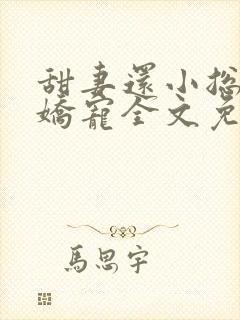 甜妻還小總
嬌寵全文免
馬思宇